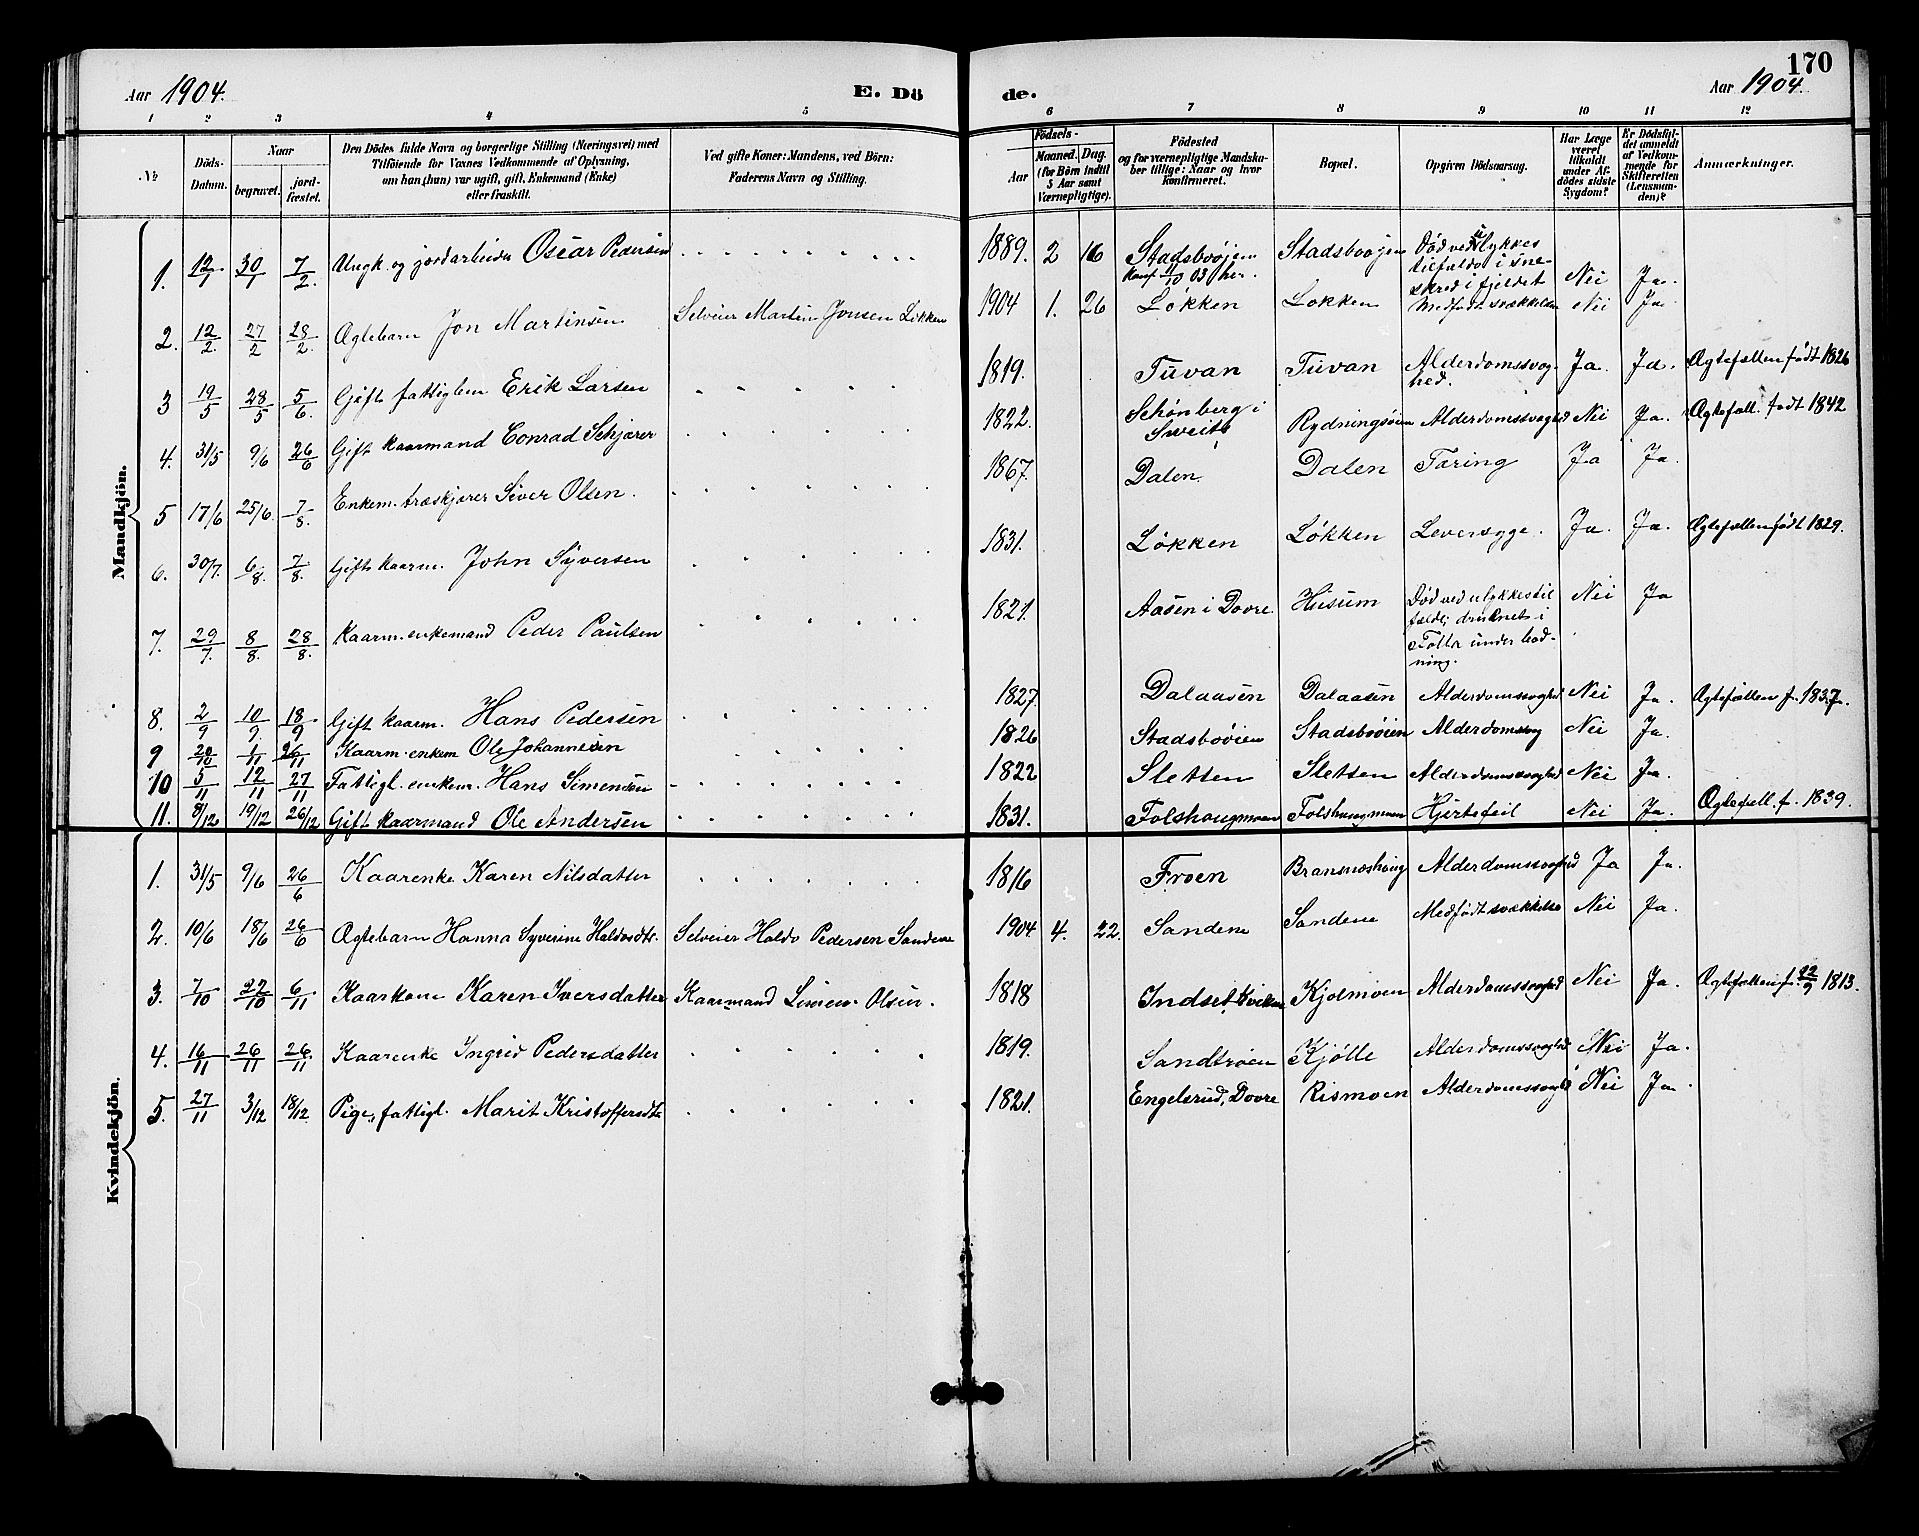 170
Aar 1904.
E. Dö
de.
Aar 1904.
1 2 3 4 5 6 7 8 9 10 11 12
№
Döds-Datum.
Naar
begravet.
jord-fæstet.
Den Dödes fulde Navn og borgerlige Stilling (Næringsvei) med
Tilföiende for Voxnes Vedkommende af Oplysning,
om han (hun) var ugift, gift, Enkemand (Enke)
eller fraskilt.
Ved gifte Koner: Mandens, ved Börn:
Faderens Navn og Stilling.
Födsels-
Aar
Maaned. Dag.
(for Börn indtil
5 Aar samt
Værnepligtige).
Födested
og for værnepligtige Mandska-
ber tillige: Naar og hvor
konfirmeret.
Bopæl.
Opgiven Dödsaarsag.
Har Læge
været
tilkaldt
under Af-
dödes sidste
Sygdom?
Er Dödsfal-
det anmeldt
af Vedkom-
mende for
Skifteretten
(Lensman-
den)?
Anmærkninger.
Mandkjön.
1. 12/1 30/1 7/2 Ungk. og jordarbeider Oscar Pedersen 1889. 2 16 Stadsbøøjen Konf. 11/10 03 her. Stadsbøøjen Død ved ulykkes
tilfælde i sne
skred i fjeldet Nei Ja.
2. 12/2. 27/2 28/2. Ægtebarn Jon Martinsen Selveier Martin Jonsen Løkken 1904 1. 26 Løkken Løkken Medfødt svækkelse Nei Ja
3 19/5 28/5 5/6. Gift fattiglem Erik Larsen 1819. Tuvan Tuvan Alderdomssvag-
hed. Ja. Ja. Ægtefællen født 1826
4. 31/5 9/6 26/6 Gift kaarmand Conrad Schjarer 1822. Schønberg i
Sweits Rydningsøien Alderdomssvaghed Nei Ja. Ægtefæll. født 1842
5 17/6 25/6. 7/8. Enkem. træskjærer Siver Olsen. 1867. Dalen. Dalen Tæring Ja Ja.
6. 30/7. 6/8. 7/8. Gift kaarm. John Syversen 1831. Løkken Løkken Leversyge. Ja. Ja. Ægtefællen født 1829.
7. 29/7. 8/8. 28/8. Kaarm. enkemand Peder Paulsen 1821. Aasen i Dovre Husum Død ved ulykkestil
fælde; druknet i
Folla under bad-
ning. Nei Ja
8. 2/9 10/9. 18/9 Gift kaarm. Hans Pedersen 1827. Dalaasen Dalaasen Alderdomssvaghed Nei Ja. Ægtefællen f. 1837.
9 20/10 1/11 26/11 Kaarm. enkem Ole Johannesen 1826 Stadsbøøien Stadsbøøien Alderdomssvag Nei Ja.
10 5/11 12/11 27/11 Fattigl. enkem. Hans Simensen 1822 Sletten Sletten Alderdomssvaghed Nei Ja.
11. 8/12 19/12 26/12 Gift kaarmand Ole Andersen 1831. Folshaugmoen Folshaugmoen Hjertefeil Nei Ja. Ægtefæll. f. 1839.
Kvindekjön.
1. 31/5 9/6 26/6 Kaarenke Karen Nilsdatter 1816 Froen Alderdomssvaghed Ja Ja.
2. 10/6 18/6 26/6 Ægtebarn Hanna Syverine Haldosdtr. Selveier Haldo Pedersen Sandene 1904 4. 22. Sandene Sandene Medfødt svækkelse Nei Ja.
3. 7/10 22/10 6/11 Kaarkone Karen Iversdatter Kaarmand Simen Olsen. 1818 Indset, Kvikne Kjølmoen Alderdomssvaghed Nei Ja. Ægtefællen f. 22/9 1813.
4. 16/11 26/11 26/11 Kaarenke Ingrid Pedersdatter 1819. Sandtrøen Kjølle Alderdomssvaghed Nei Ja.
5. 27/11 3/12 18/12. Pige, fattigl. Marit Kristoffersdtr. 1821. Engelsrud, Dovre Rismoen Alderdomssvagh Nei Ja.